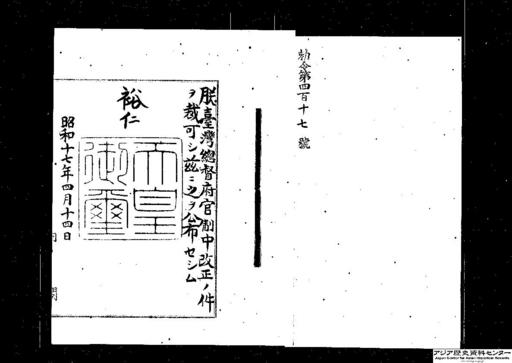 勅令第四百十七號
朕臺灣總督府官制中改正ノ件
ヲ裁可シ茲ニ之ヲ公布セシム
裕仁
天皇
御璽
昭和十七年四月十四日
アジア歴史資料センター
Japan Center for Asian Historical Records